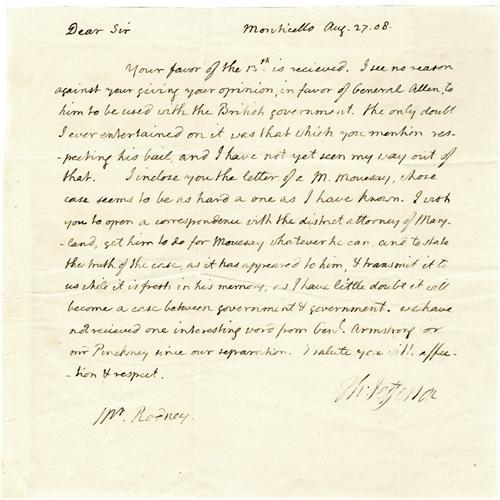 Dear Sir Monticello Aug. 27. 08.
Your favor of the 13th. is recieved. I see no reason
against your giving your opinion, in favor of General Allen, to
him to be used with the British government. the only doubt
I ever entertained on it was that which you mention res-
-pecting his bail, and I have not yet seen my way out of
that. I inclose you the letter of a M. Moussay, whose
case seems to be as hard a one as I have known. I wish
you to open a correspondence with the district attorney of Mary-
-land, get him to do for Moussay whatever he can, and to state
the truth of the case, as it has appeared to him, & transmit it to
us while it is fresh in his memory, as I have little doubt it will
become a case between government & government. we have
not recieved one interesting word from Genl. Armstrong or
mr Pinckney since our separation. I salute you with affec-
-tion & respect.
Th: Jefferson
Mr. Rodney.